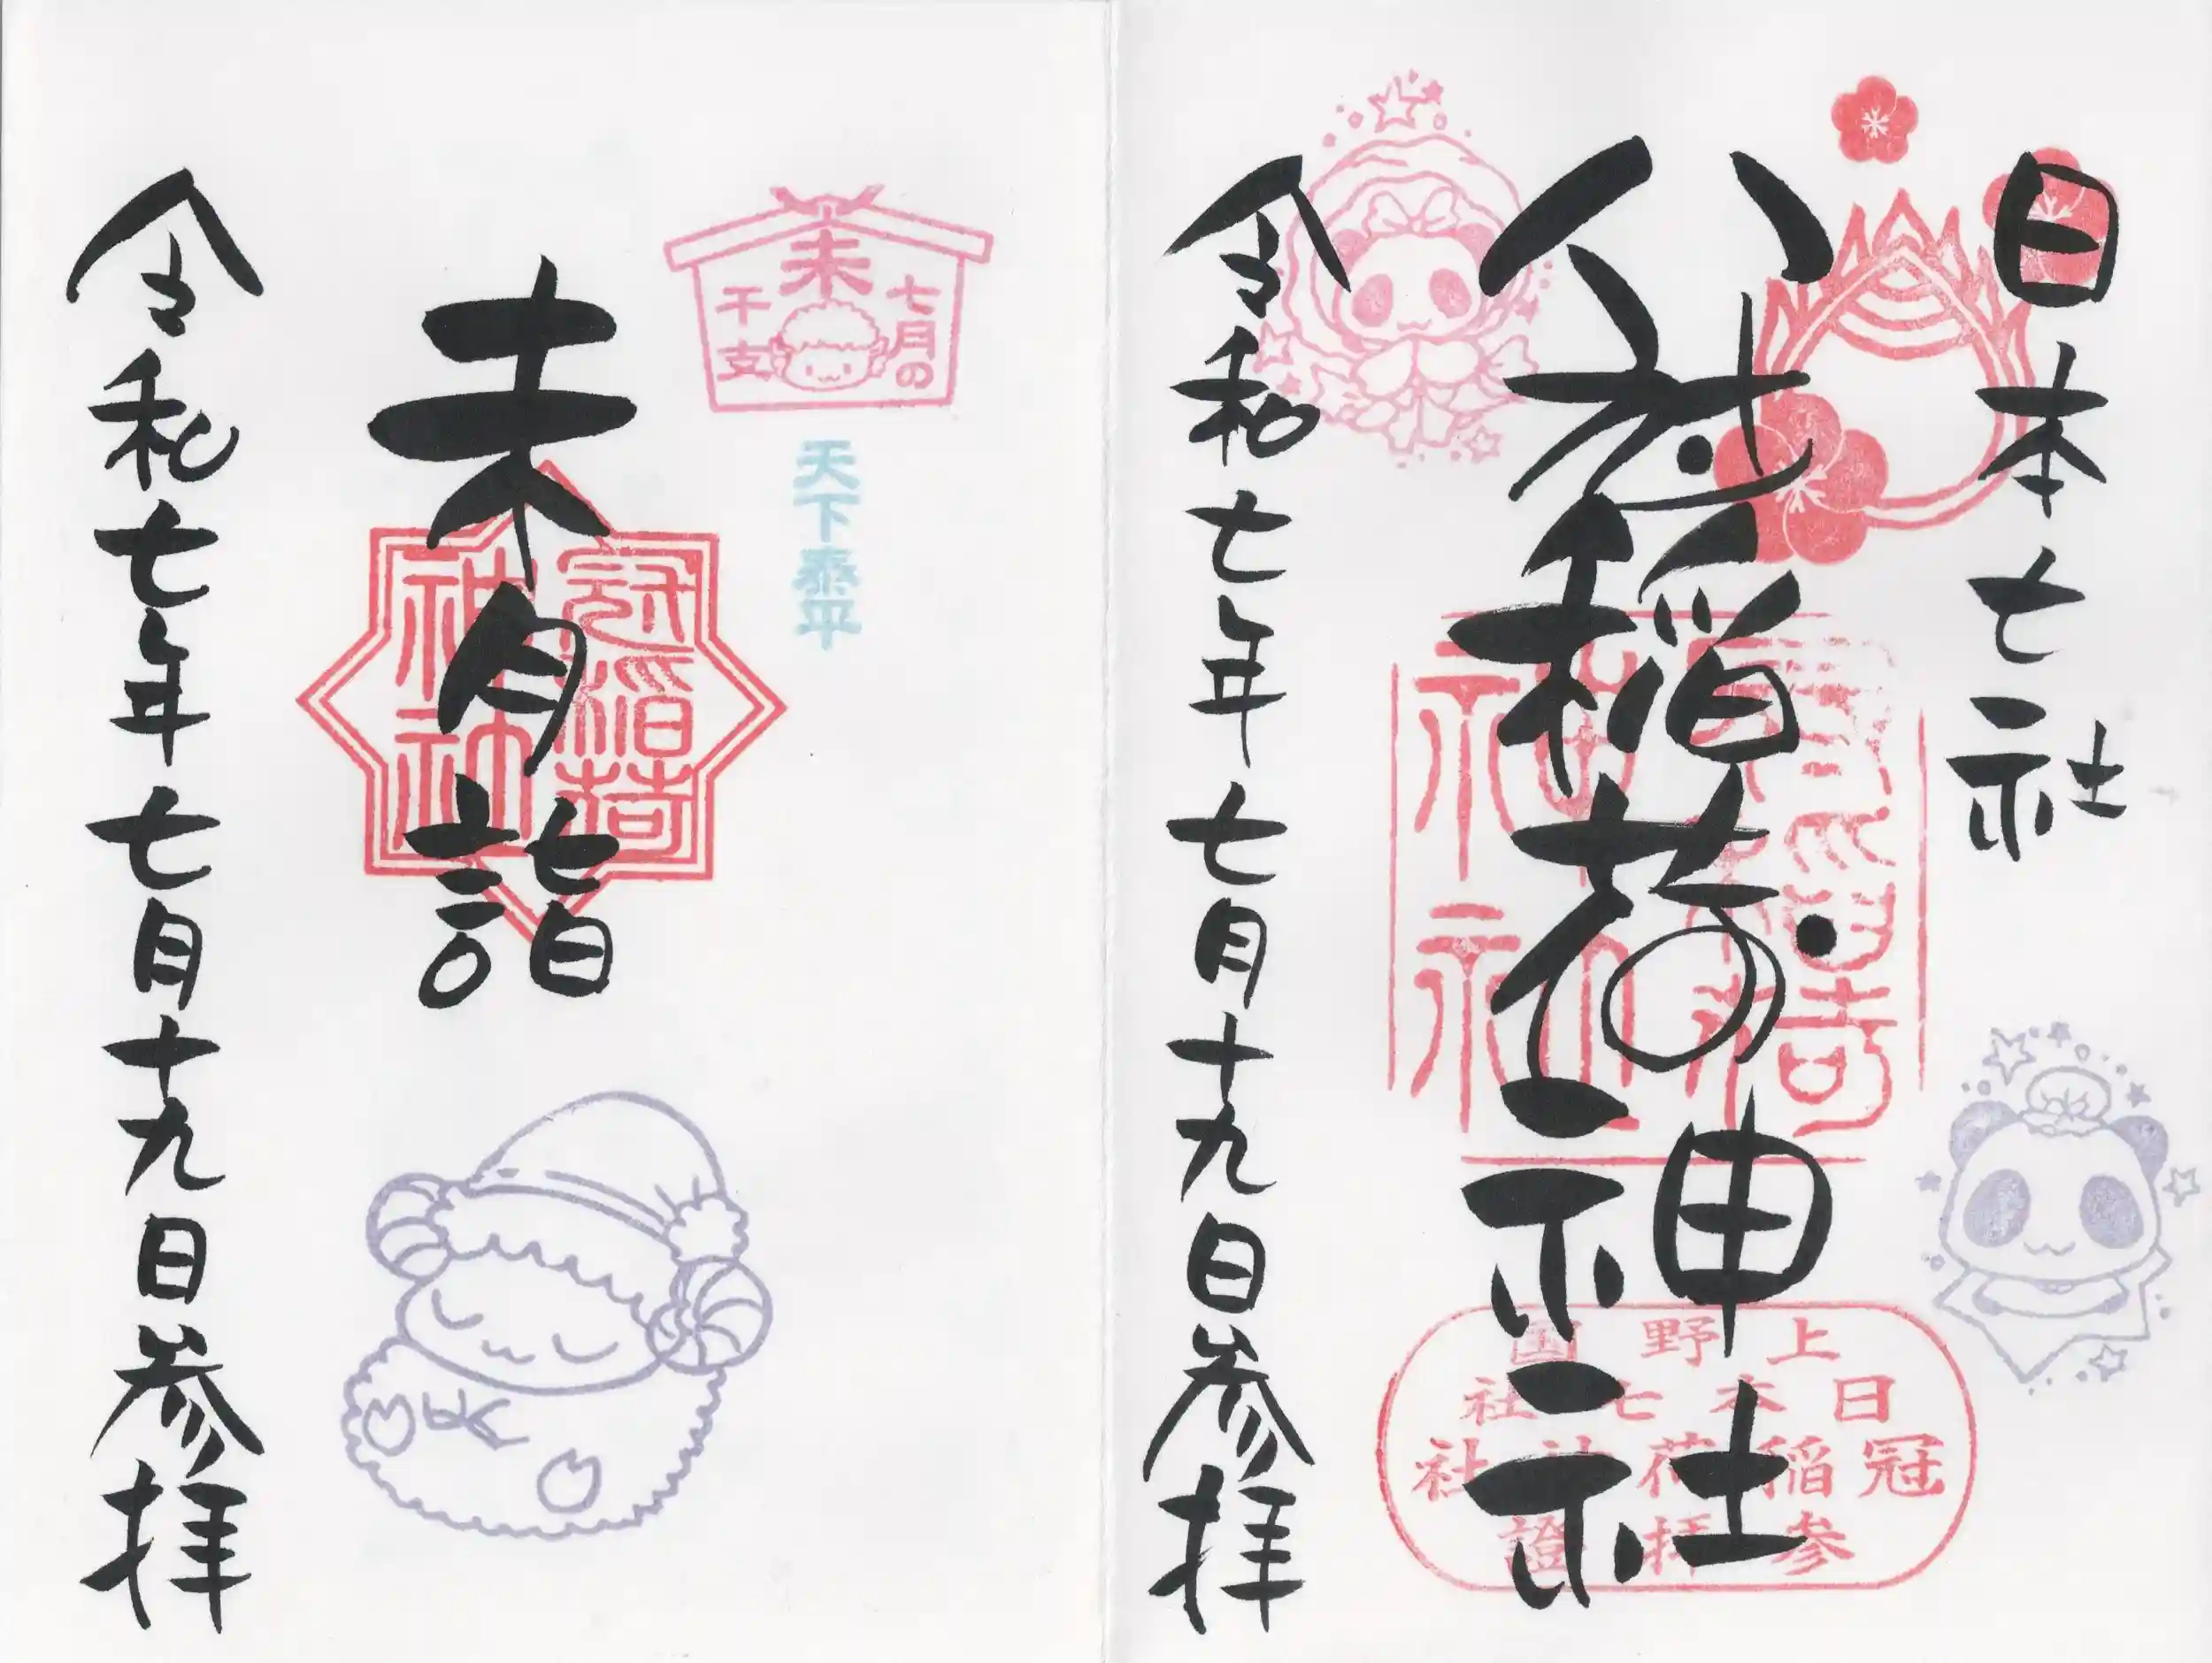 日本七社
冠稲荷神社
令和七年七月十九日参拝
上野国
日本七社
冠稲荷神社
参拝證
未
七月の
干支
天下泰平
未月詣
冠稲荷
神社
令和七年七月十九日参拝